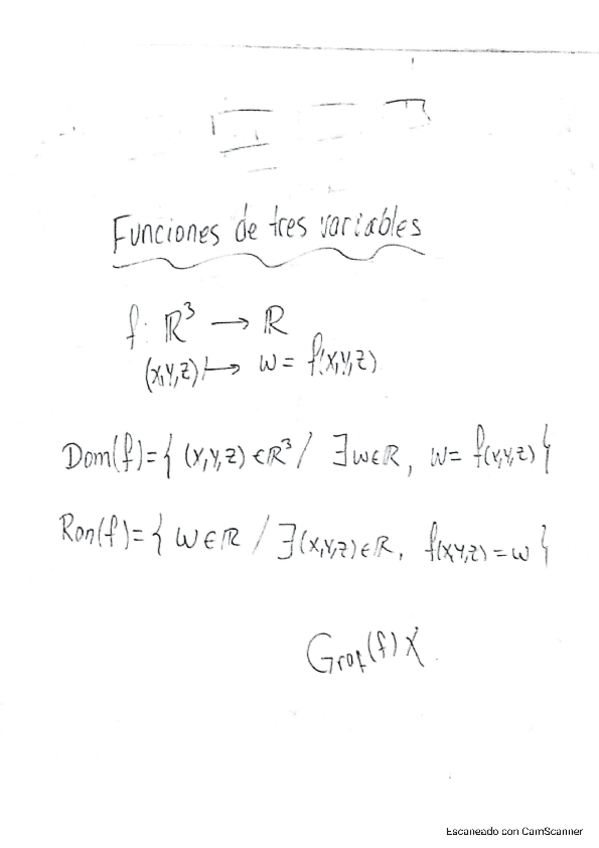 Funciones de tres variables
f: ℝ³ → ℝ
(x,y,z) ↦ w = f(x,y,z)
Dom(f)={ (x,y,z) ∈ ℝ³ / ∃ w∈ℝ, w= f(x,y,z) }
Ran(f)={ w∈ℝ / ∃ (x,y,z)∈ℝ, f(x,y,z)=w }
Graf(f) X.
Escaneado con CamScanner